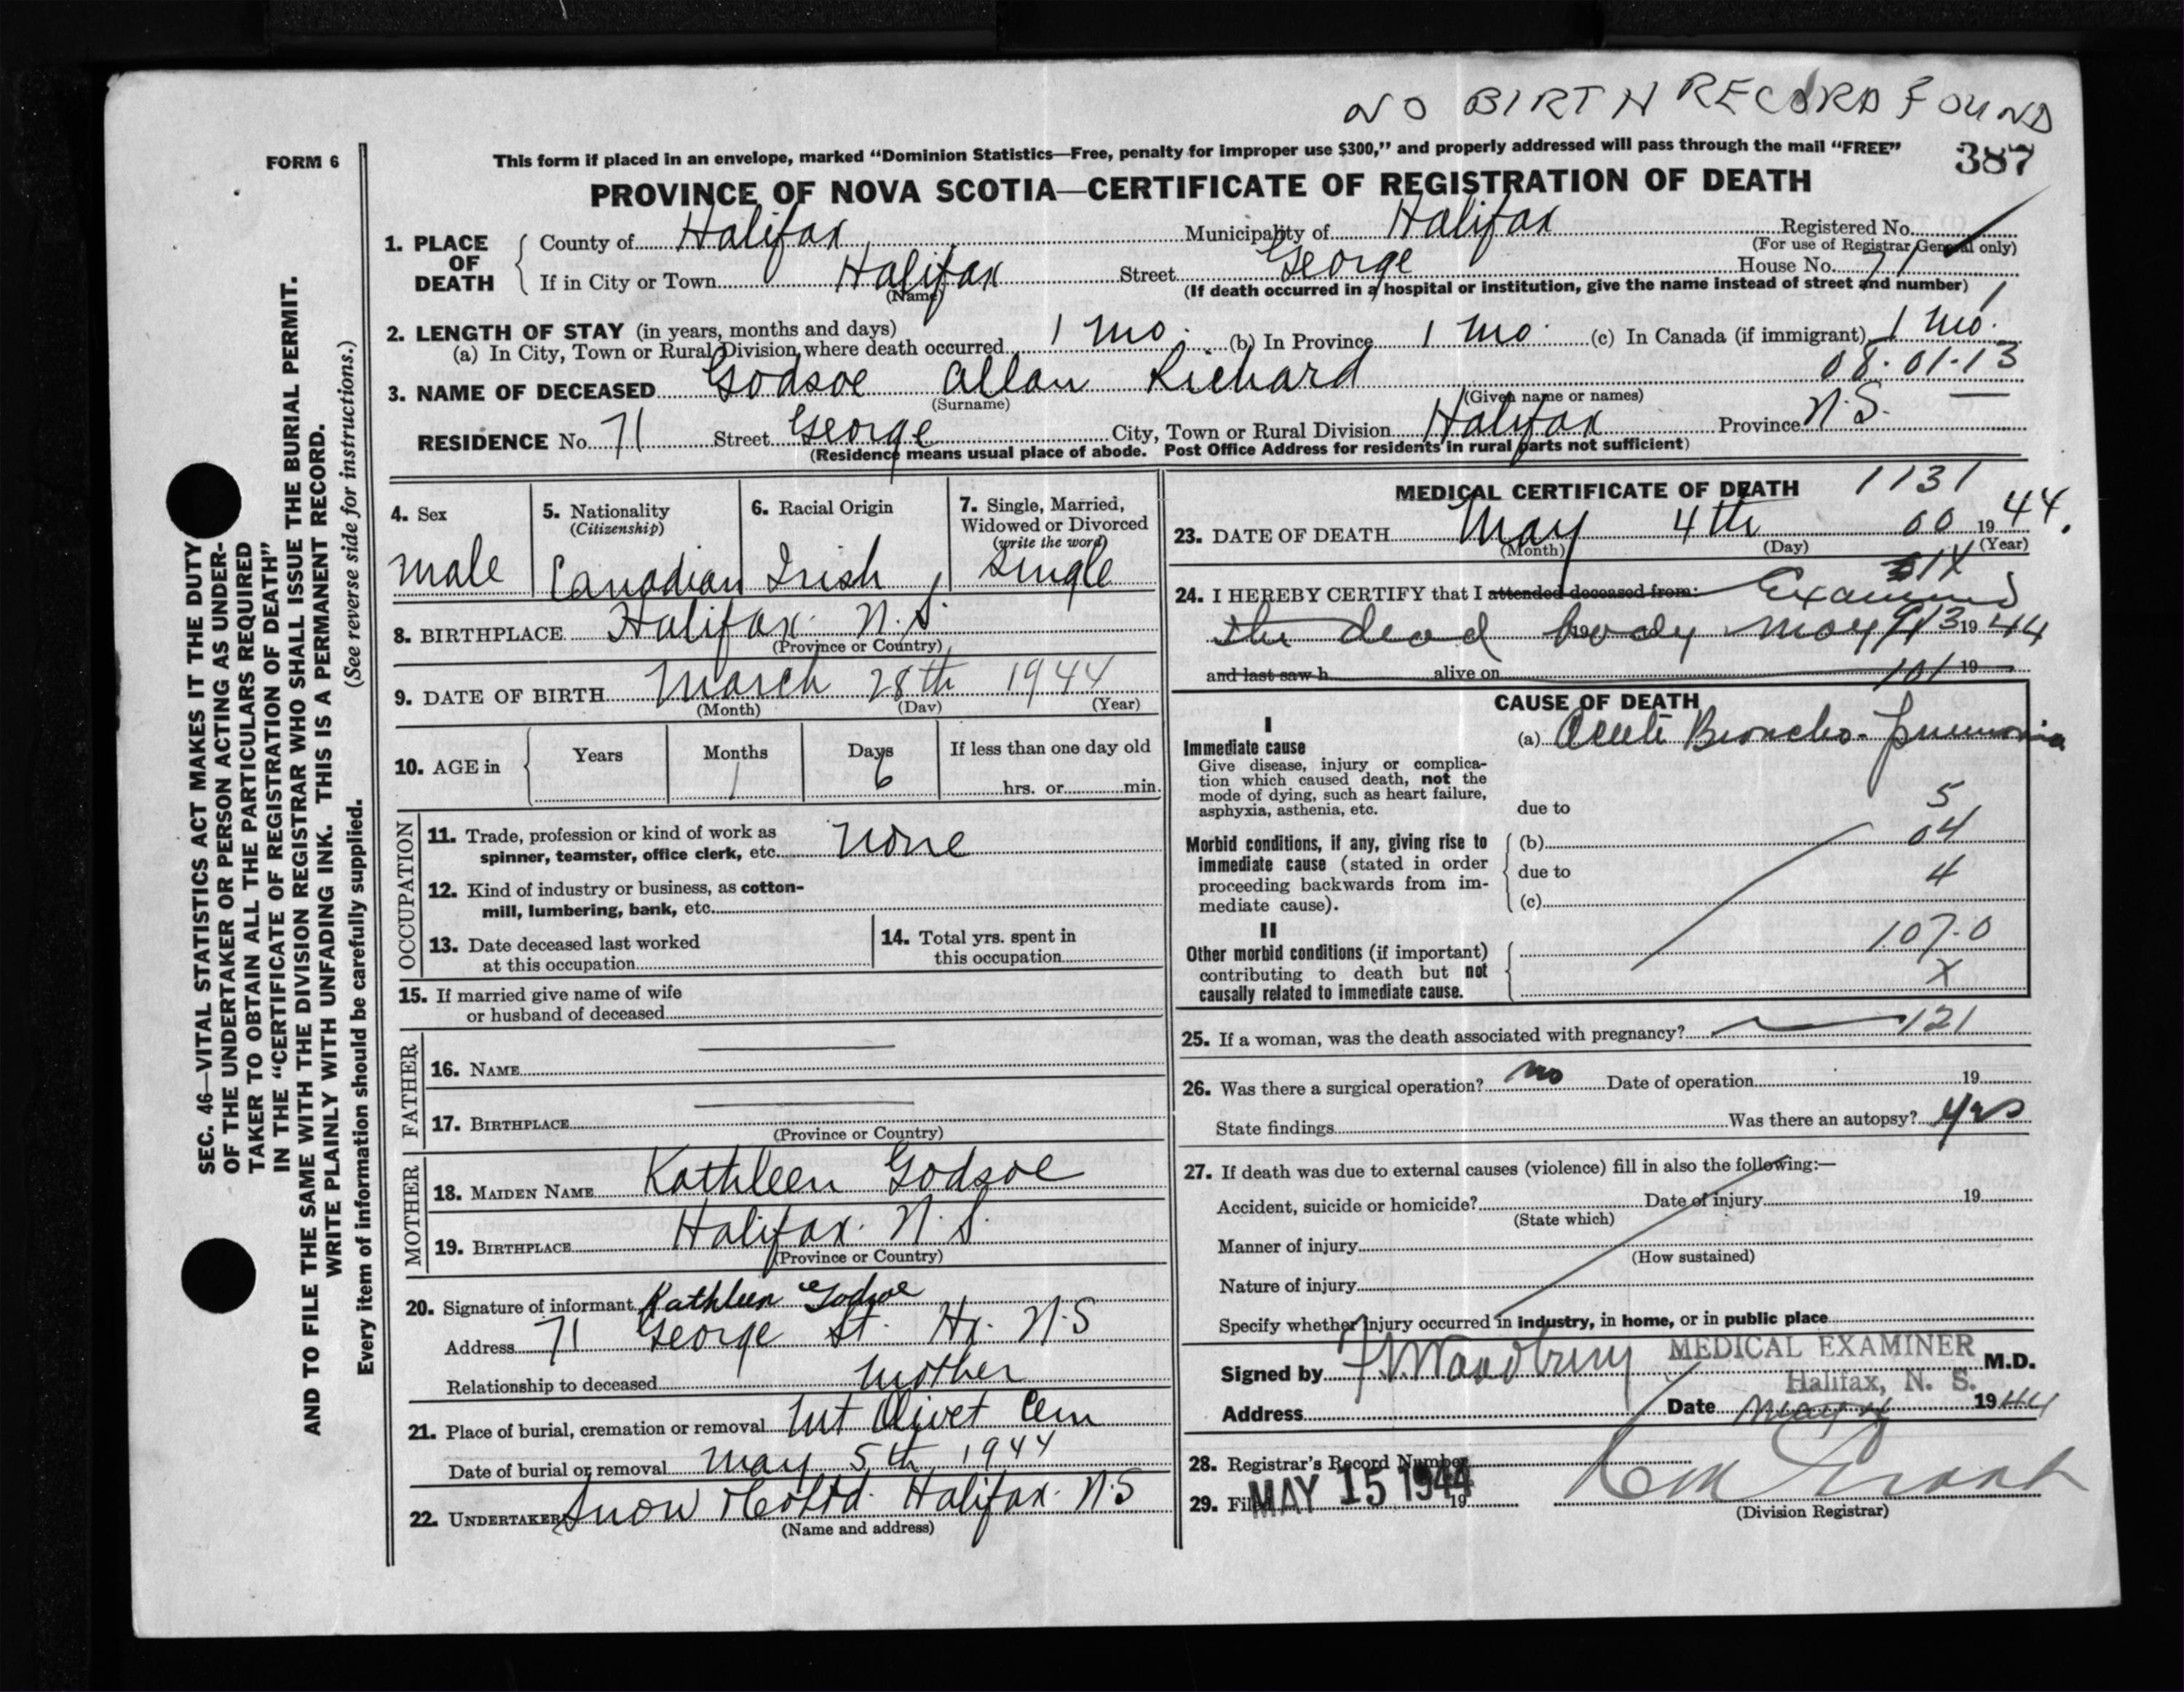 NO BIRTH RECORD FOUND
FORM 6
This form if placed in an envelope, marked “Dominion Statistics—Free, penalty for improper use $300,” and properly addressed will pass through the mail “FREE”
387
PROVINCE OF NOVA SCOTIA—CERTIFICATE OF REGISTRATION OF DEATH
1. PLACE OF DEATH
County of Halifax Municipality of Halifax Registered No.
(For use of Registrar General only)
If in City or Town Halifax Street George House No. 71
(Name) (If death occurred in a hospital or institution, give the name instead of street and number)
2. LENGTH OF STAY (in years, months and days)
(a) In City, Town or Rural Division where death occurred 1 mo. (b) In Province 1 mo. (c) In Canada (if immigrant) 1 mo.
08.01.13
3. NAME OF DECEASED Godsoe Allan Richard
(Surname) (Given name or names)
RESIDENCE No. 71 Street George City, Town or Rural Division Halifax Province N.S.
(Residence means usual place of abode. Post Office Address for residents in rural parts not sufficient)
4. Sex
male
5. Nationality
(Citizenship)
Canadian
6. Racial Origin
Irish
7. Single, Married,
Widowed or Divorced
(write the word)
Single
8. BIRTHPLACE Halifax N.S.
(Province or Country)
9. DATE OF BIRTH March 28th 1944
(Month) (Day) (Year)
10. AGE in
Years Months Days If less than one day old
1 6 hrs. or min.
OCCUPATION
11. Trade, profession or kind of work as
spinner, teamster, office clerk, etc. None
12. Kind of industry or business, as cotton-
mill, lumbering, bank, etc.
13. Date deceased last worked
at this occupation
14. Total yrs. spent in
this occupation
15. If married give name of wife
or husband of deceased
FATHER
16. NAME
17. BIRTHPLACE
(Province or Country)
MOTHER
18. MAIDEN NAME Kathleen Godsoe
19. BIRTHPLACE Halifax. N.S.
(Province or Country)
20. Signature of informant Kathleen Godsoe
Address 71 George St. Hx. N.S
Relationship to deceased Mother
21. Place of burial, cremation or removal Mt Olivet Cem
Date of burial or removal May 5th 1944
22. UNDERTAKER Snow & Co Ltd. Halifax. N.S
(Name and address)
MEDICAL CERTIFICATE OF DEATH 1131
23. DATE OF DEATH May 4th 00 1944.
(Month) (Day) (Year)
24. I HEREBY CERTIFY that I attended deceased from: Examined
the dead body May 1944
and last saw h alive on 19
CAUSE OF DEATH
I
Immediate cause
Give disease, injury or complica-
tion which caused death, not the
mode of dying, such as heart failure,
asphyxia, asthenia, etc.
(a) Acute Broncho-pneumonia
due to 5
Morbid conditions, if any, giving rise to
immediate cause (stated in order
proceeding backwards from im-
mediate cause).
(b) 04
due to 4
(c)
II
Other morbid conditions (if important)
contributing to death but not
causally related to immediate cause.
107.0
X
25. If a woman, was the death associated with pregnancy? 121
26. Was there a surgical operation? no Date of operation 19
State findings Was there an autopsy? yes
27. If death was due to external causes (violence) fill in also the following:—
Accident, suicide or homicide? Date of injury 19
(State which)
Manner of injury
(How sustained)
Nature of injury
Specify whether injury occurred in industry, in home, or in public place
MEDICAL EXAMINER
Signed by Woodbury M.D.
Halifax, N. S.
Address Date May 4 1944
28. Registrar's Record Number
29. Filed MAY 15 1944 19
(Division Registrar)
SEC. 46—VITAL STATISTICS ACT MAKES IT THE DUTY
OF THE UNDERTAKER OR PERSON ACTING AS UNDER-
TAKER TO OBTAIN ALL THE PARTICULARS REQUIRED
IN THE “CERTIFICATE OF REGISTRATION OF DEATH”
AND TO FILE THE SAME WITH THE DIVISION REGISTRAR WHO SHALL ISSUE THE BURIAL PERMIT.
WRITE PLAINLY WITH UNFADING INK. THIS IS A PERMANENT RECORD.
Every item of information should be carefully supplied. (See reverse side for instructions.)